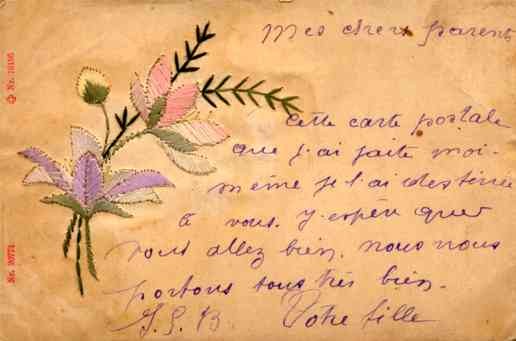 Mes chers parents
Cette carte postale
que j'ai faite moi-
même je l'ai destinée
à vous. J'espère que
vous allez bien. nous nous
portons tous très bien.
Votre fille
Nr. 20774